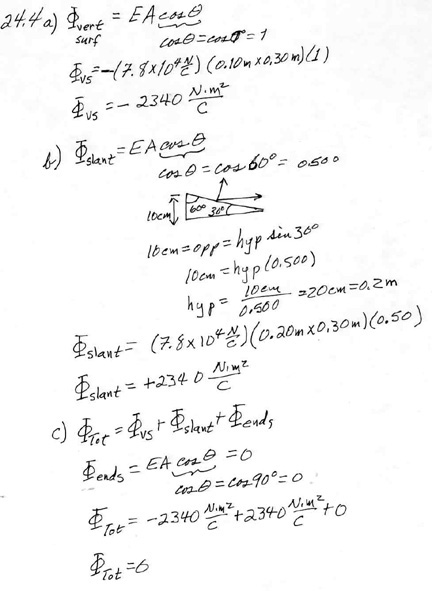 24.4 a) Φ_vert surf = EA cosθ
cosθ = cos0° = 1
Φ_vs = -(7.8×10⁴ N/C)(0.10m×0.30m)(1)
Φ_vs = -2340 N·m²/C
b) Φ_slant = EA cosθ
cosθ = cos60° = 0.500
10cm 60° 30°
10cm = opp = hyp sin30°
10cm = hyp(0.500)
hyp = 10cm/0.500 = 20cm = 0.2m
Φ_slant = (7.8×10⁴ N/C)(0.20m×0.30m)(0.50)
Φ_slant = +2340 N·m²/C
c) Φ_Tot = Φ_vs + Φ_slant + Φ_ends
Φ_ends = EA cosθ = 0
cosθ = cos90° = 0
Φ_Tot = -2340 N·m²/C + 2340 N·m²/C + 0
Φ_Tot = 0